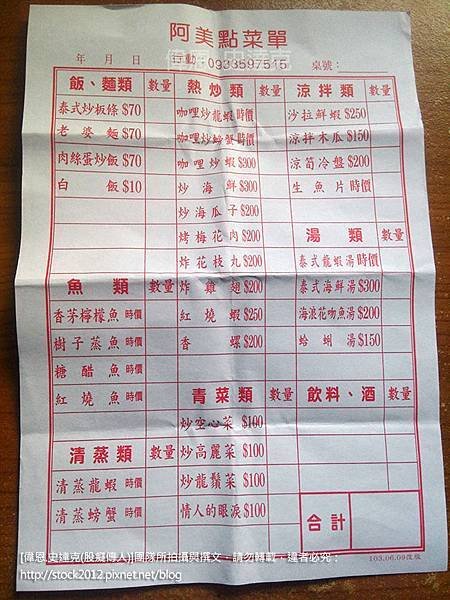 阿美點菜單
年 月 日 行動 0933597515 桌號:
飯、麵類 數量
泰式炒板條 $70
老婆麵 $70
肉絲蛋炒飯 $70
白飯 $10
魚類 數量
香茅檸檬魚 時價
樹子蒸魚 時價
糖醋魚 時價
紅燒魚 時價
清蒸類 數量
清蒸龍蝦 時價
清蒸螃蟹 時價
熱炒類 數量
咖哩炒龍蝦 時價
咖哩炒螃蟹 時價
咖哩炒蝦 $300
炒海鮮 $300
炒海瓜子 $200
烤梅花肉 $200
炸花枝丸 $200
炸雞翅 $200
紅燒蝦 $250
香螺 $200
青菜類 數量
炒空心菜 $100
炒高麗菜 $100
炒龍鬚菜 $100
情人的眼淚 $100
涼拌類 數量
沙拉鮮蝦 $250
涼拌木瓜 $150
涼筍冷盤 $200
生魚片 時價
湯類 數量
泰式龍蝦湯 時價
泰式海鮮湯 $300
海浪花吻魚湯 $200
蛤蜊湯 $150
飲料、酒 數量
合計
103.06.09改版
[偉恩.史達克(股癡傳人)]團隊所拍攝與撰文，請勿轉載，違者必究：
http://stock2012.pixnet.net/blog